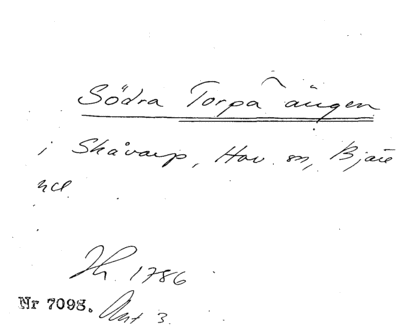 Södra Torpa ängen
i Skåvarp, Hov sn, Bjäre
hd
Jh. 1786
Nr 7098. Akt 3.